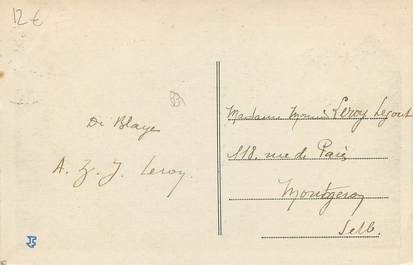 12 €
De Blaye
A. Z. J. Leroy.
Madame Leroy Legout
118, rue de Paris
Montgeron
S et O.